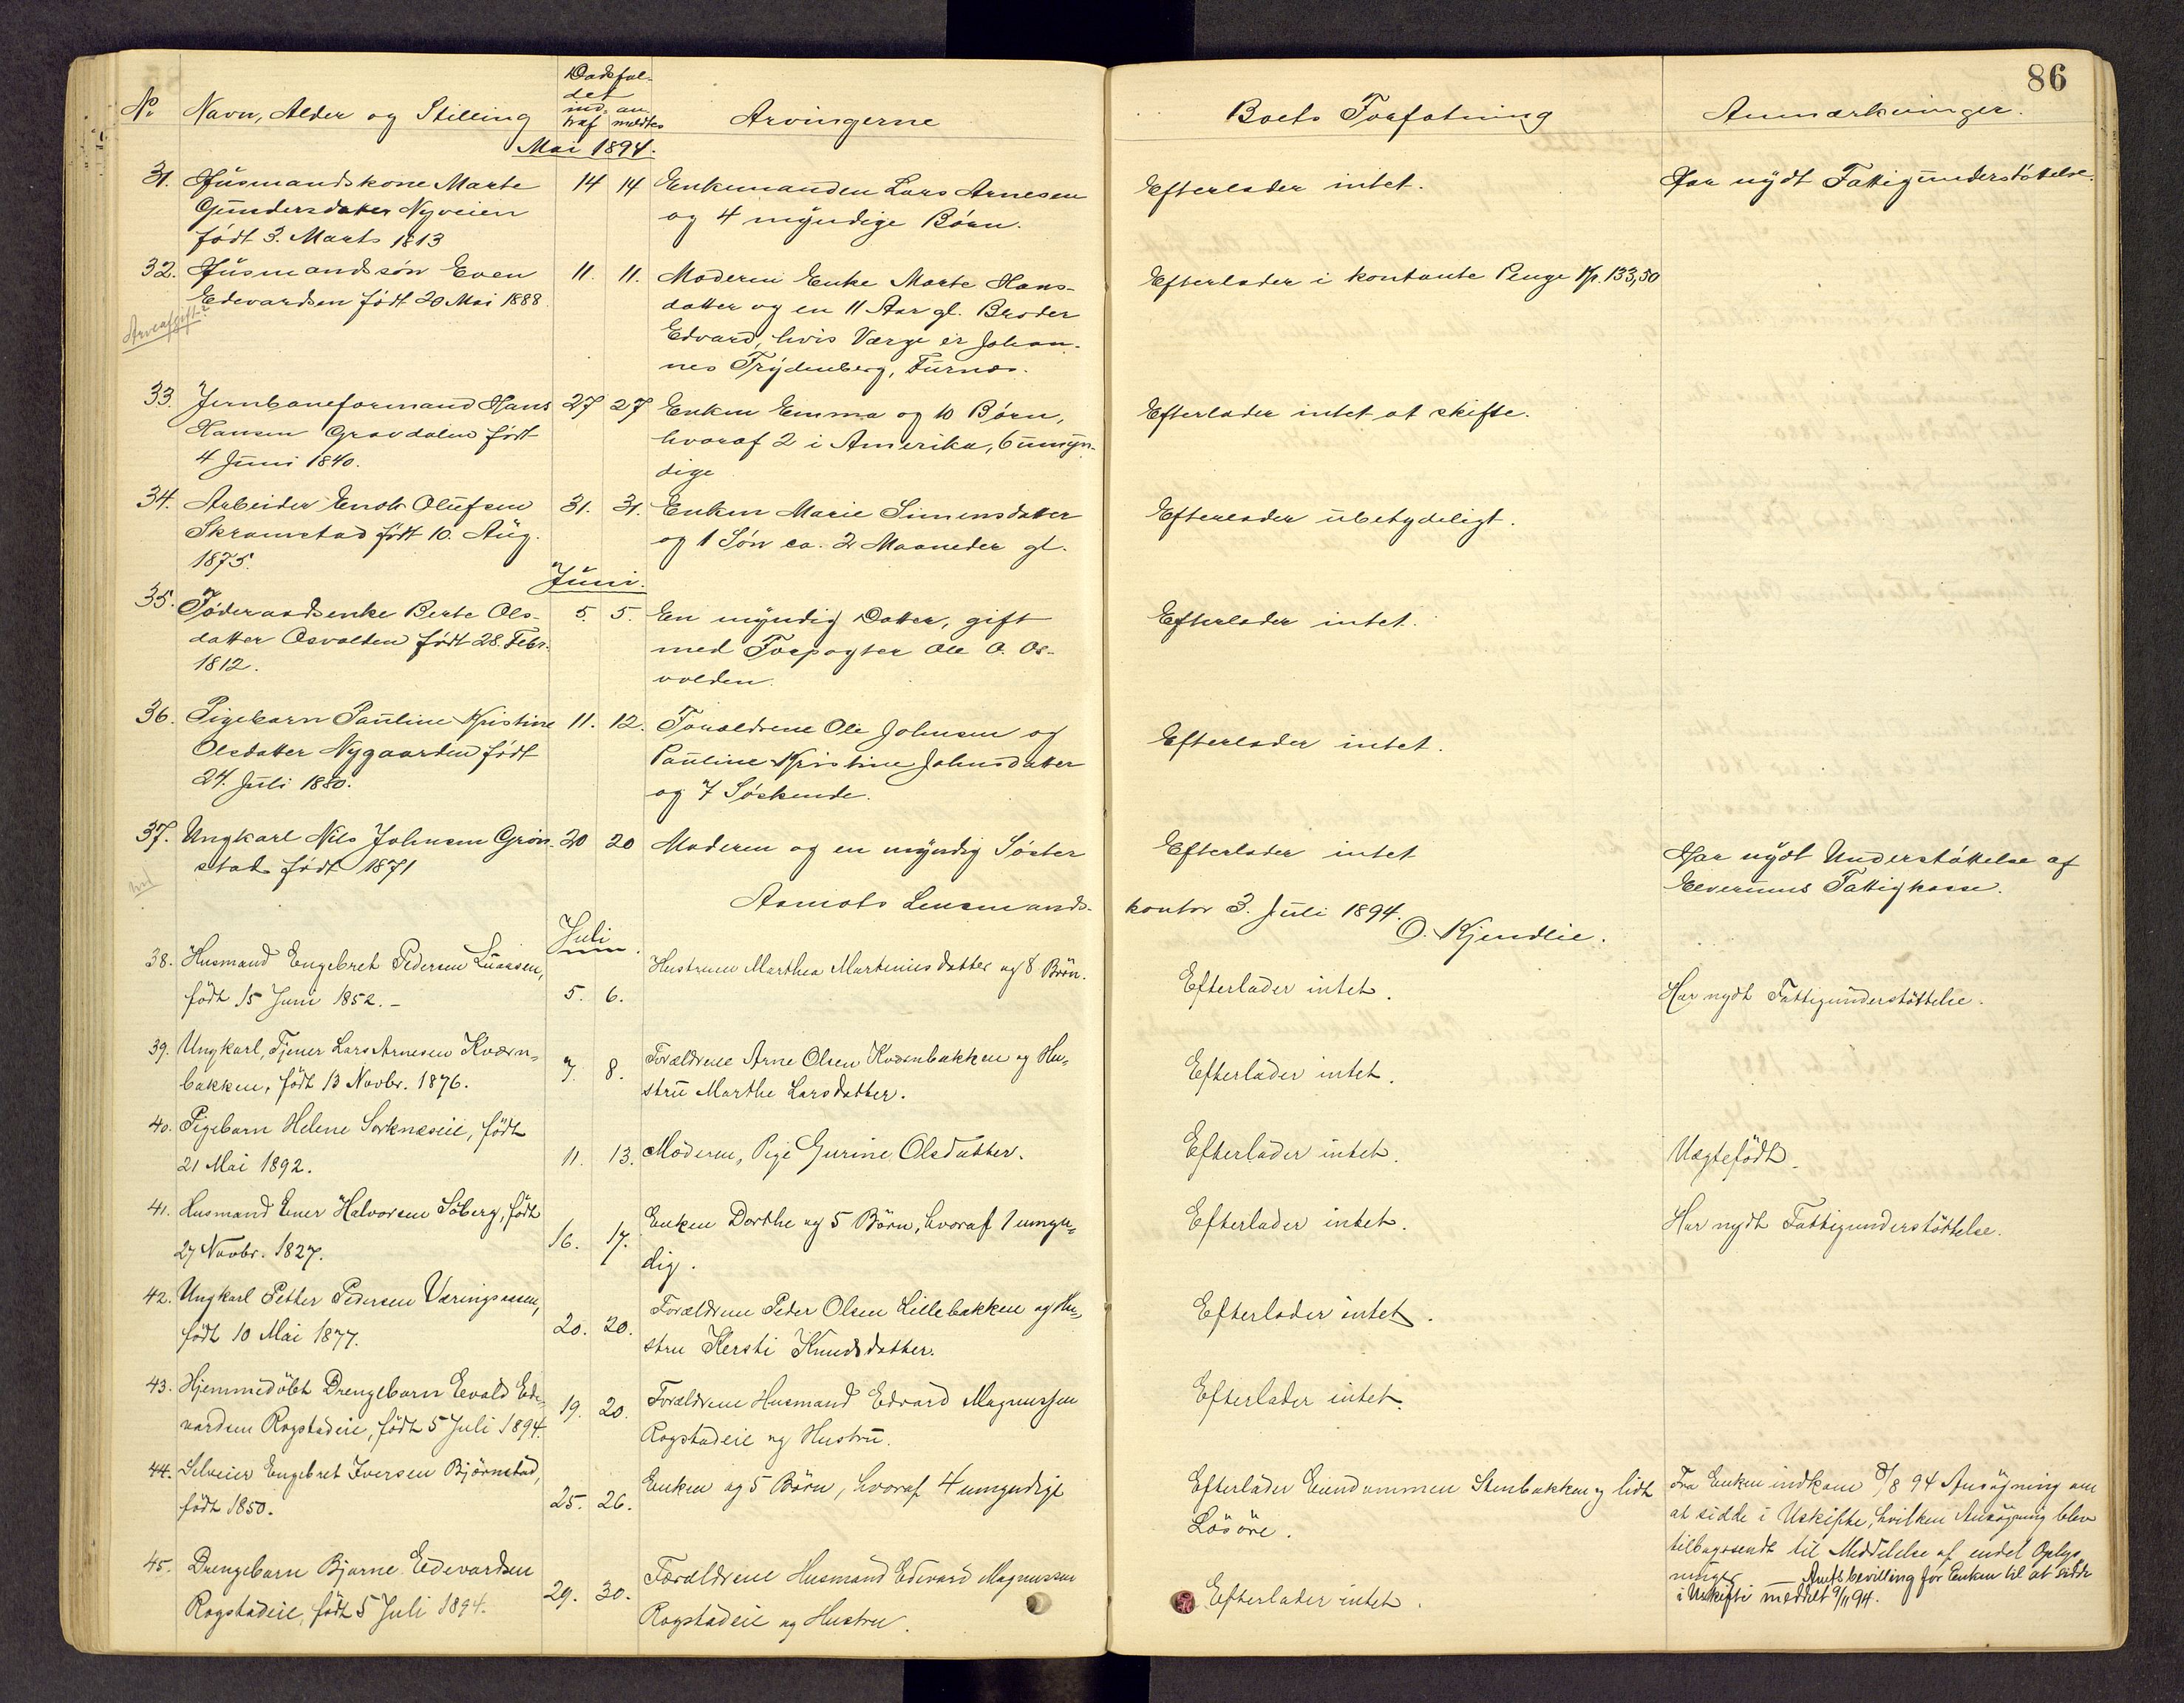 86
Dødsfal-
det
ind- an-
traf meldtes
No. Navn, Alder og Stilling Arvingerne Boets Forfatning Anmærkninger.
Mai 1894.
31. Husmandskone Marte 14 14 Enkemanden Lars Arnesen Efterlader intet. Har nydt Fattigunderstøttelse.
Gundersdatter Nyveien og 4 myndige Børn.
født 3. Marts 1813
32. Husmandssøn Even 11. 11. Moderen Enke Marte Hans- Efterlader i kontante Penge Kr. 133,50
Edevardsen født 20 Mai 1888. datter og en 11 Aar gl. Broder
Arveafgift? Edvard, hvis Værge er Johan-
nes Frydenberg, Furnes.
33. Jernbaneformand Hans 27 27 Enken Emma og 10 Børn, Efterlader intet at skifte.
Hansen Gravdalen født hvoraf 2 i Amerika, 6 umyn-
4 Juni 1840. dige
34. Arbeider Enok Olufsen 31. 31. Enken Marie Simensdatter Efterlader ubetydeligt.
Skramstad født 10. Aug. og 1 Søn ca. 2 Maaneder gl.
1875.
Juni.
35. Føderaadsenke Berte Ols- 5. 5. En myndig Datter, gift Efterlader intet.
datter Osvolden født 28. Febr. med Forpagter Ole O. Os-
1812. volden.
36. Pigebarn Pauline Kristine 11. 12. Forældrene Ole Johnsen og Efterlader intet.
Olsdatter Nygaarden født Pauline Kristine Johnsdatter
24. Juli 1880. og 7 Søskende.
37. Ungkarl Nils Johnsen Grøn- 20 20 Moderen og en myndig Søster Efterlader intet Har nydt Understøttelse af
stad født 1871 Elverums Fattigkasse.
Aamots Lensmands- kontor 3. Juli 1894.
O. Kjendlie.
Juli
38. Husmand Engebret Pedersen Luaasen, Hustruen Marthea Martinusdatter og 8 Børn.
født 15 Juni 1852. - 5. 6. Efterlader intet. Har nydt Fattigunderstøttelse.
39. Ungkarl, Tjener Lars Arnesen Kværn- 7. 8. Forældrene Arne Olsen Kværnbakken og Hu- Efterlader intet.
bakken, født 13 Novbr. 1876. stru Marthe Larsdatter.
40. Pigebarn Helene Sorknæseie, født
21 Mai 1892. 11. 13. Moderen, Pige Gurine Olsdatter. Efterlader intet. Uægtefødt.
41. Husmand Ener Halvorsen Søberg, født Enken Dorthe og 5 Børn, hvoraf 1 umyn- Efterlader intet. Har nydt Fattigunderstøttelse.
27 Novbr. 1827. 16. 17. dig.
42. Ungkarl Petter Pedersen Væringsaasen, Forældrene Peder Olsen Lillebakken og Hu- Efterlader intet.
født 10 Mai 1877. 20. 20. stru Kersti Knudsdatter.
43. Hjemmedøbt Drengebarn Evald Ede- 19. 20. Forældrene Husmand Edvard Magnussen Efterlader intet.
vardsen Rogstadeie, født 5 Juli 1894. Rogstadeie og Hustru.
44. Selveier Engebret Iversen Bjørnstad, Enken og 5 Børn, hvoraf 4 umyndige Efterlader Eiendommen Stenbakken og lidt Fra Enken indkom 8/8 94 Ansøgning om
født 1850. 25. 26. Løsøre. at sidde i Uskifte, hvilken Ansøgning blev
tilbagesendt til Meddelelse af endel Oplys-
ninger — Amtsbevilling for Enken til at sidde
i Uskifte meddelt 9/11 94.
45. Drengebarn Bjarne Edevardsen 29. 30. Forældrene Husmand Edevard Magnussen Efterlader intet.
Rogstadeie, født 5 Juli 1894. Rogstadeie og Hustru.